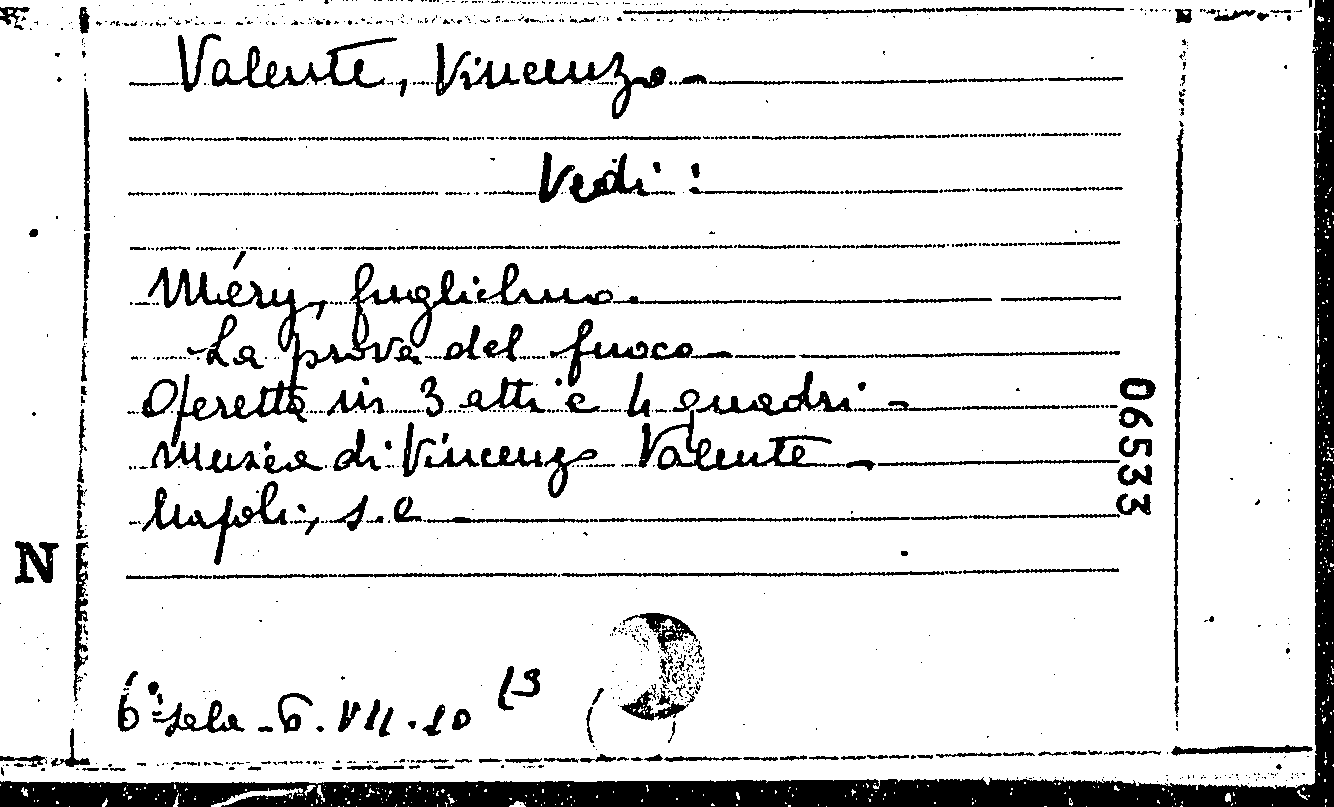 Valente, Vincenzo -
Vedi :
Méry, Guglielmo.
La prova del fuoco -
Operetta in 3 atti e 4 quadri -
Musica di Vincenzo Valente -
Napoli, s. e -
06533
N
6ª Sala - 6. VII. 10 (3